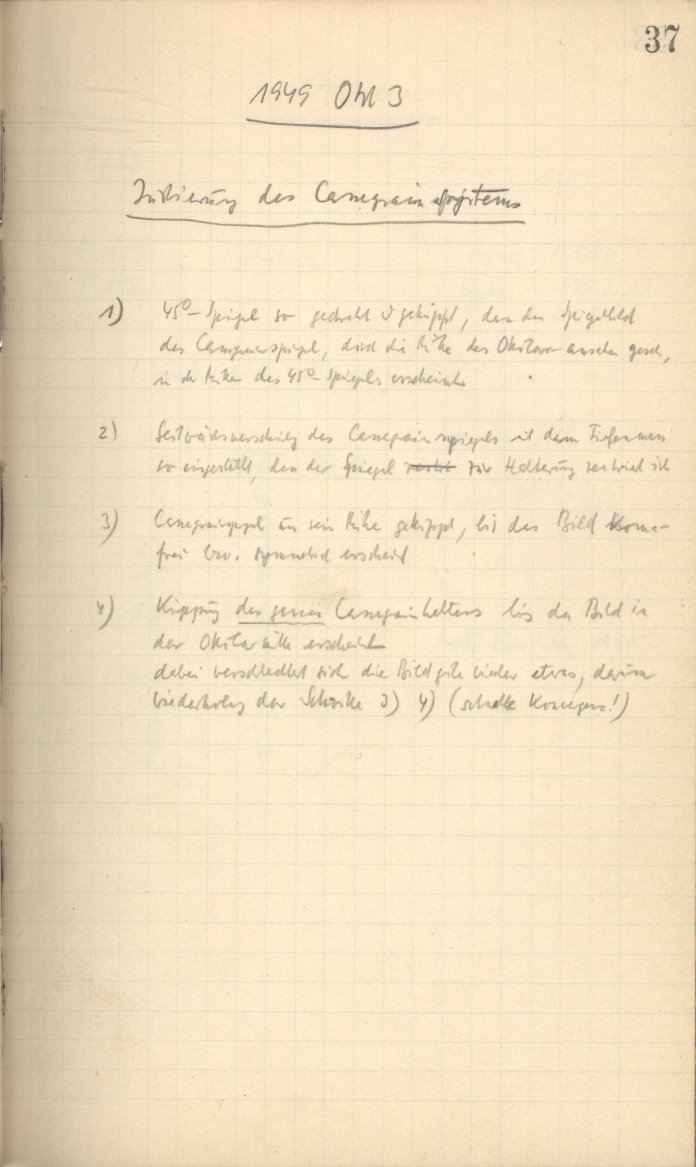 37
1949 Okt 3
Justierung des Cassegrainsystems
1) 45°-Spiegel so gedreht & gekippt, dass das Spiegelbild
des Cassegrainspiegel, durch die Mitte des Okulars gesehen,
in der Mitte des 45°-Spiegels erscheint
2) Seitwärtsverschiebung des Cassegrainspiegels mit dem
so eingestellt, dass der Spiegel zur Halterung zentriert ist
3) Cassegrainspiegel um sein Mitte gekippt, bis das Bild Koma-
frei bzw. symmetrisch erscheint
4) Kippung des ganzen Cassegrainhalters bis das Bild in
der Okularmitte erscheint
dabei verschlechtert sich die Bildgüte wieder etwas, darum
Wiederholung der Schritte 3) 4) (schnelle Konvergenz!)